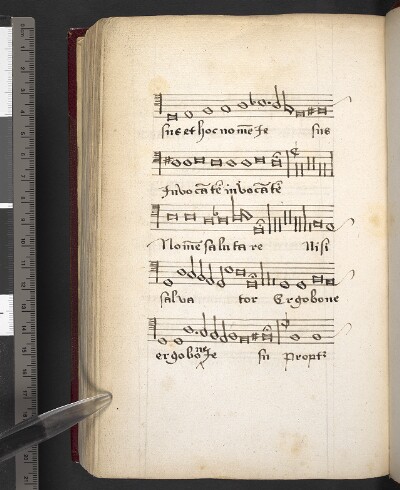 sus et hoc nomē Je sus
Invocātē invocātē
Nomē salutare Nisi
salva tor Ergo bone
ergo bone Je su propt̄